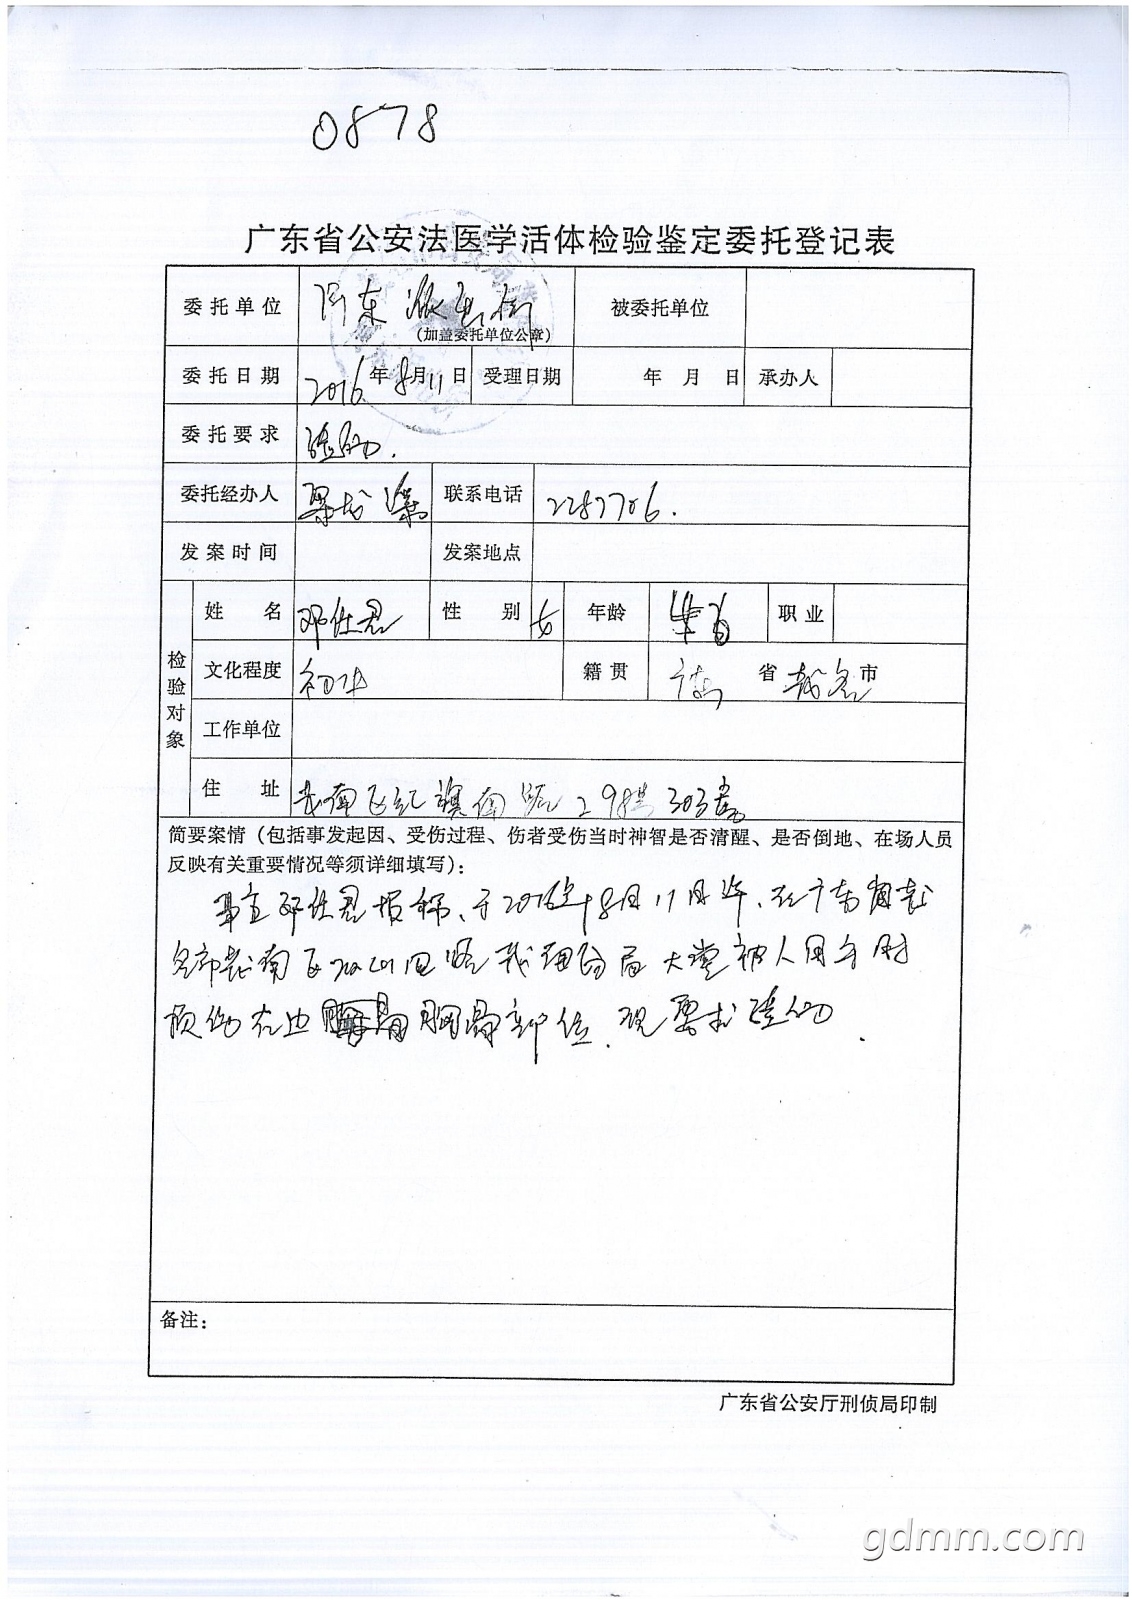 0878
广东省公安法医学活体检验鉴定委托登记表
委托单位 河东派出所 (加盖委托单位公章) 被委托单位
委托日期 2016年8月11日 受理日期 年 月 日 承办人
委托要求 验伤.
委托经办人 联系电话 2287706.
发案时间 发案地点
检验对象
姓名 邓仕君 性别 女 年龄 职业
文化程度 初中 籍贯 广东 省 茂名 市
工作单位
住址 茂南区红旗南路298号303房
简要案情（包括事发起因、受伤过程、伤者受伤当时神智是否清醒、是否倒地、在场人员
反映有关重要情况等须详细填写）：
事主邓仕君报称、于2016年8月11日许、在广东省茂
名市茂南区 路 局大堂被人用手肘
损伤左边 胸骨部位、现要求验伤.
备注：
广东省公安厅刑侦局印制
gdmm.com